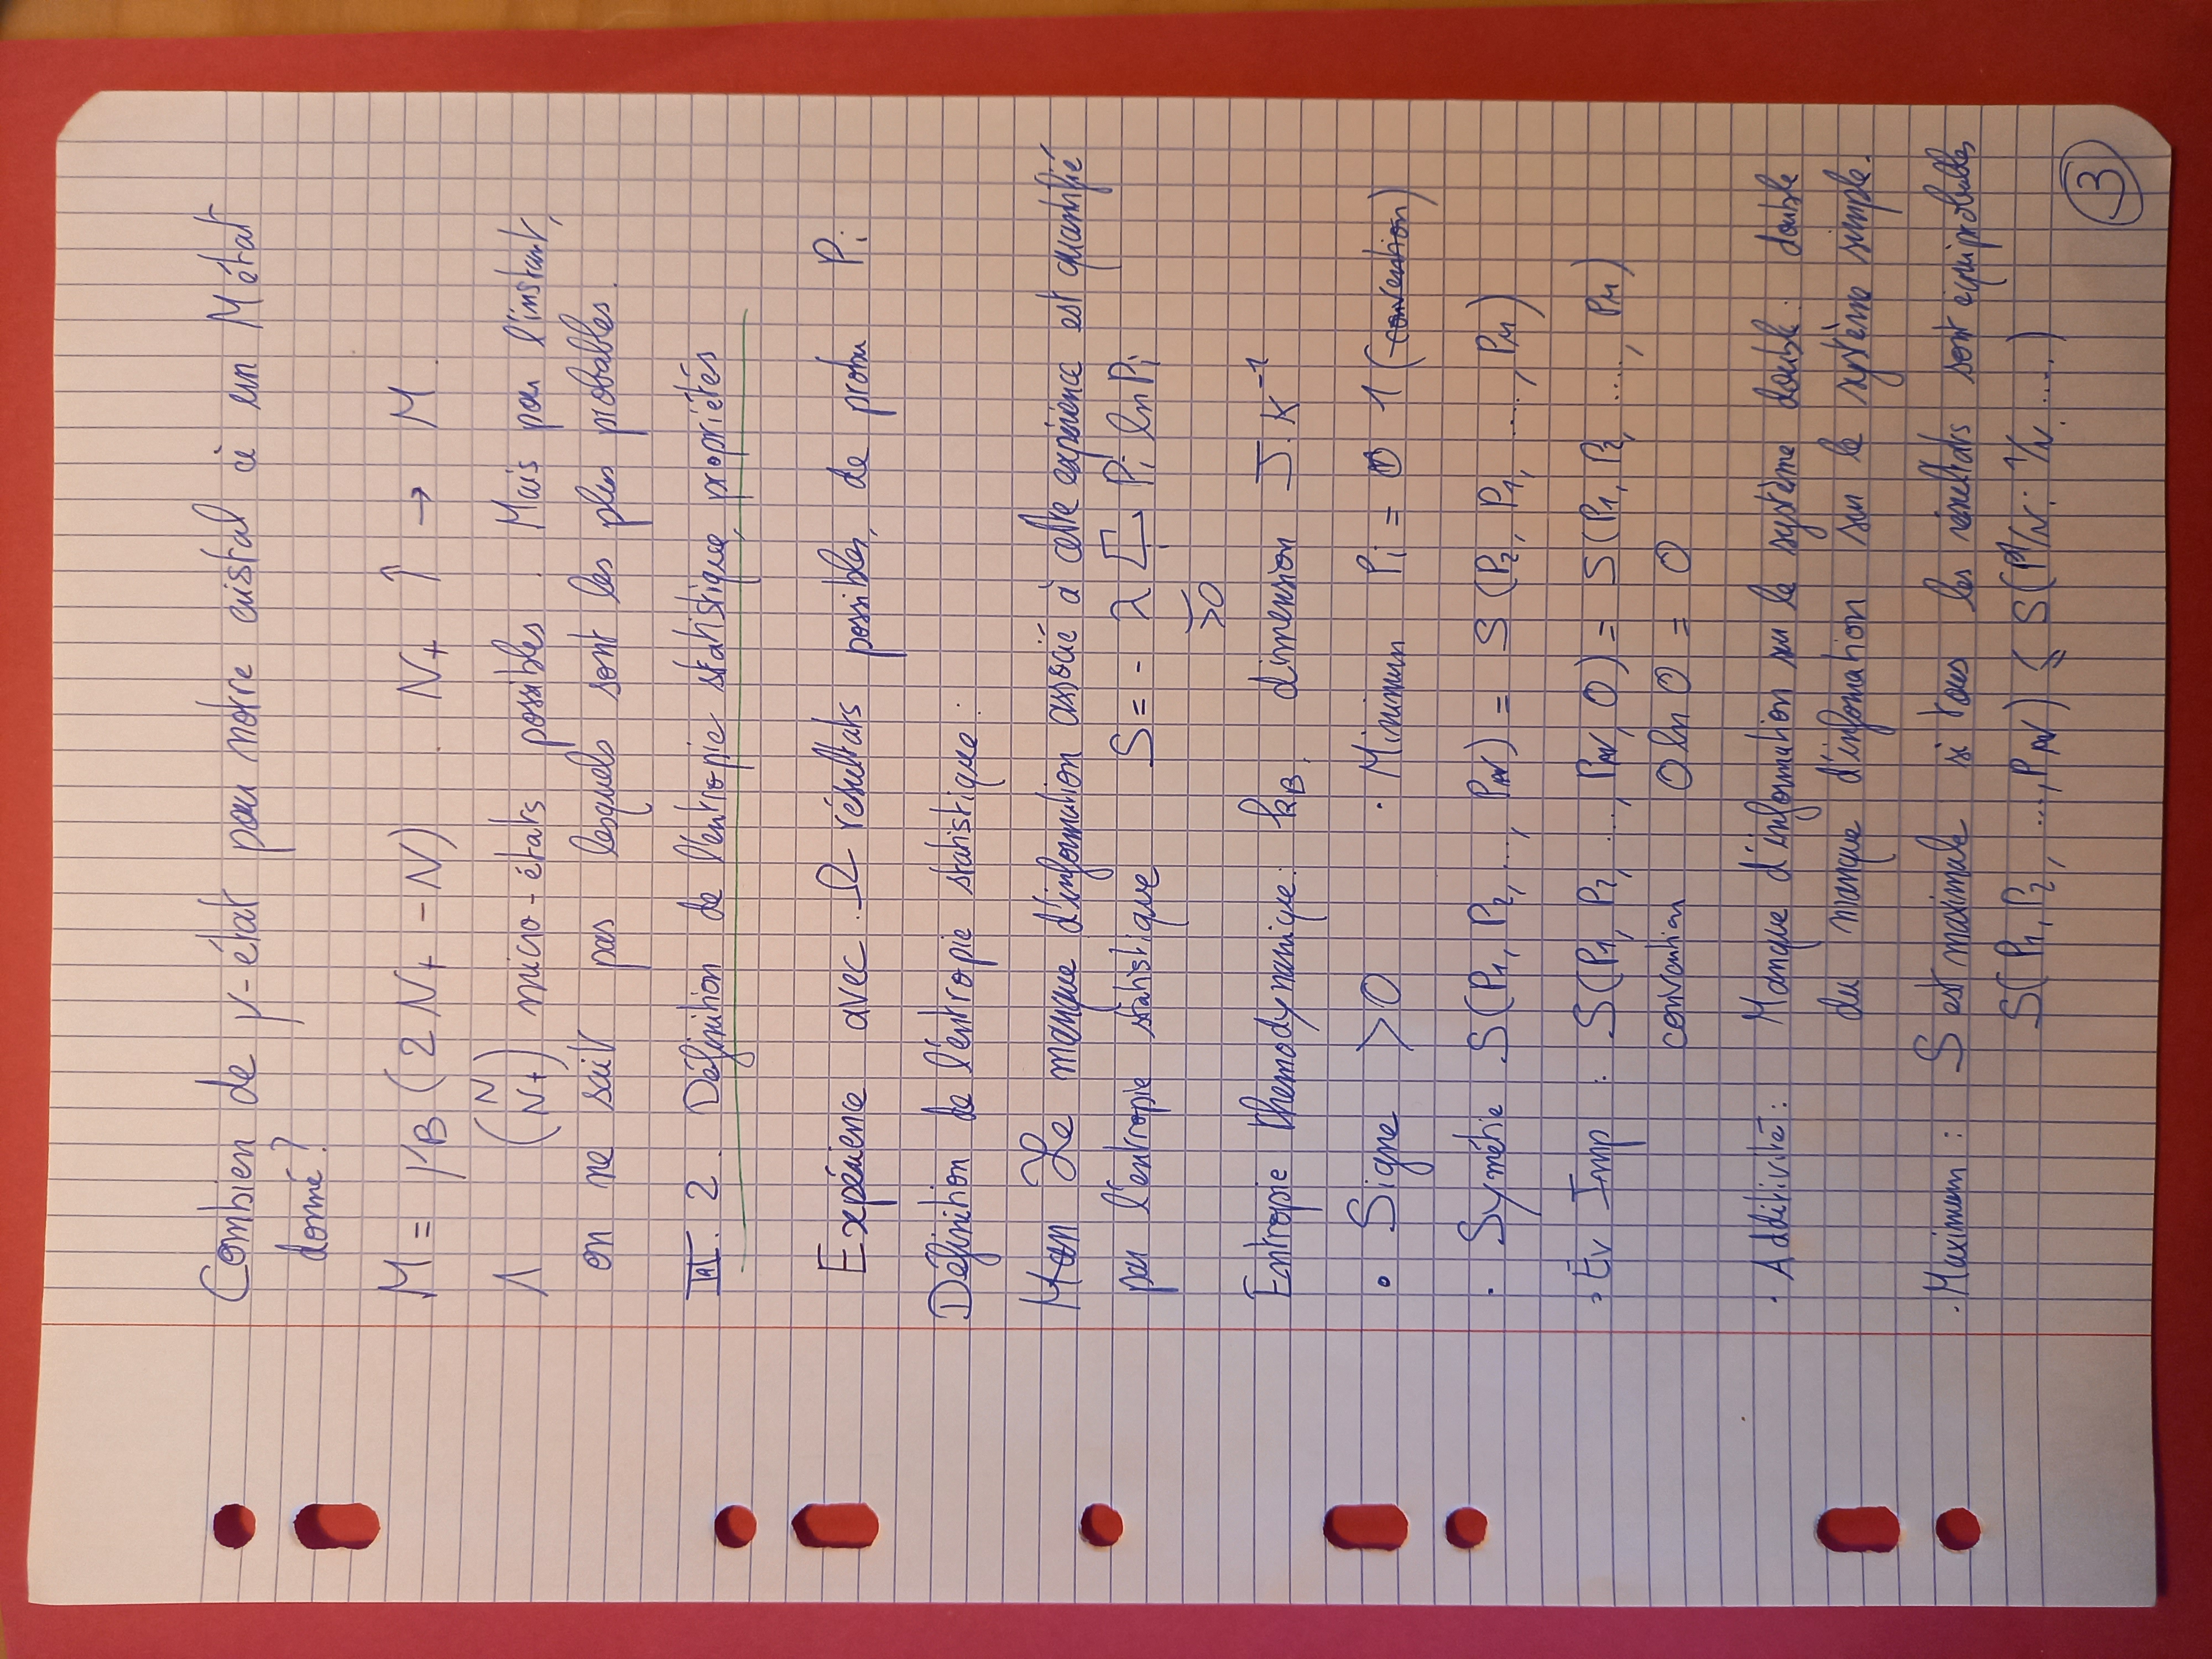 Combien de μ-état pour notre cristal à un M état
donné?
M = μB (2 N+ - N) N+ ↑ → M
Λ (N N+) micro-états possibles. Mais pour l'instant,
on ne sait pas lesquels sont les plus probables.
III. 2. Définition de l'entropie statistique, propriétés
Expérience avec Ω résultats possibles, de proba Pi
Définition de l'entropie statistique :
Le manque d'information associé à cette expérience est quantifié
par l'entropie statistique S = - λ Σ Pi ln Pi
>0
Entropie thermodynamique : kB. dimension J.K⁻¹
• Signe >0 • Minimum Pi = 1 (convention)
• Symétrie S(P1, P2, ..., PN) = S(P2, P1, ...., PN)
• Ev Imp : S(P1, P2, ..., PN, 0) = S(P1, P2, ...., PN)
convention 0 ln 0 = 0
• Additivité : Manque d'information sur le système double : double
du manque d'information sur le système simple.
• Maximum : S est maximale si tous les résultats sont équiprobables
S(P1, P2, ..., PN) ≤ S(1/N; 1/N; ....)
3